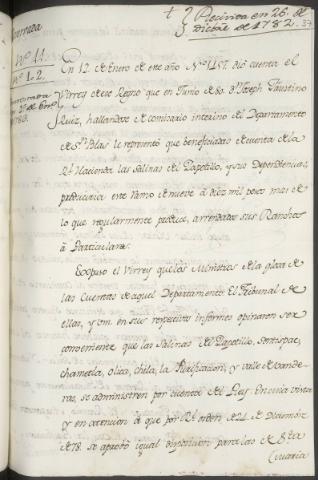 Recivida en 26. de
Dicbre de 1782.
37
N.º 11.
N.º 1.2.
En 12. de Enero de este año N.º 1457. dió cuenta el
Virrey de este Reyno que en Junio de 80. d.n Joseph Faustino
Ruiz, hallandose de Comisario interino del Departamento
de S.n Blas le representó que beneficiadas de cuenta de la
R.l Hacienda las Salinas del Zapotillo, y sus Dependencias,
produciria este Ramo de nueve á diez mil pesos mas de
lo que regularmente produce, arrendadas sus Ranchos
á Particulares.
Expuso el Virrey que los Ministros de la plaza de
las Cuentas de aquel Departamento. El Tribunal de
ellas, y en sus respectivos informes opinaron ser
conveniente que las Salinas del Zapotillo, Sentispac,
chametla, olica, chila, la Purificacion, y valle de vande-
ras, se administren por cuenta del Rey. En cuia virtud
y en atencion á que por R.l orden de 24. de Diciembre
de 78. se aprobó igual disposicion para las de S.ta